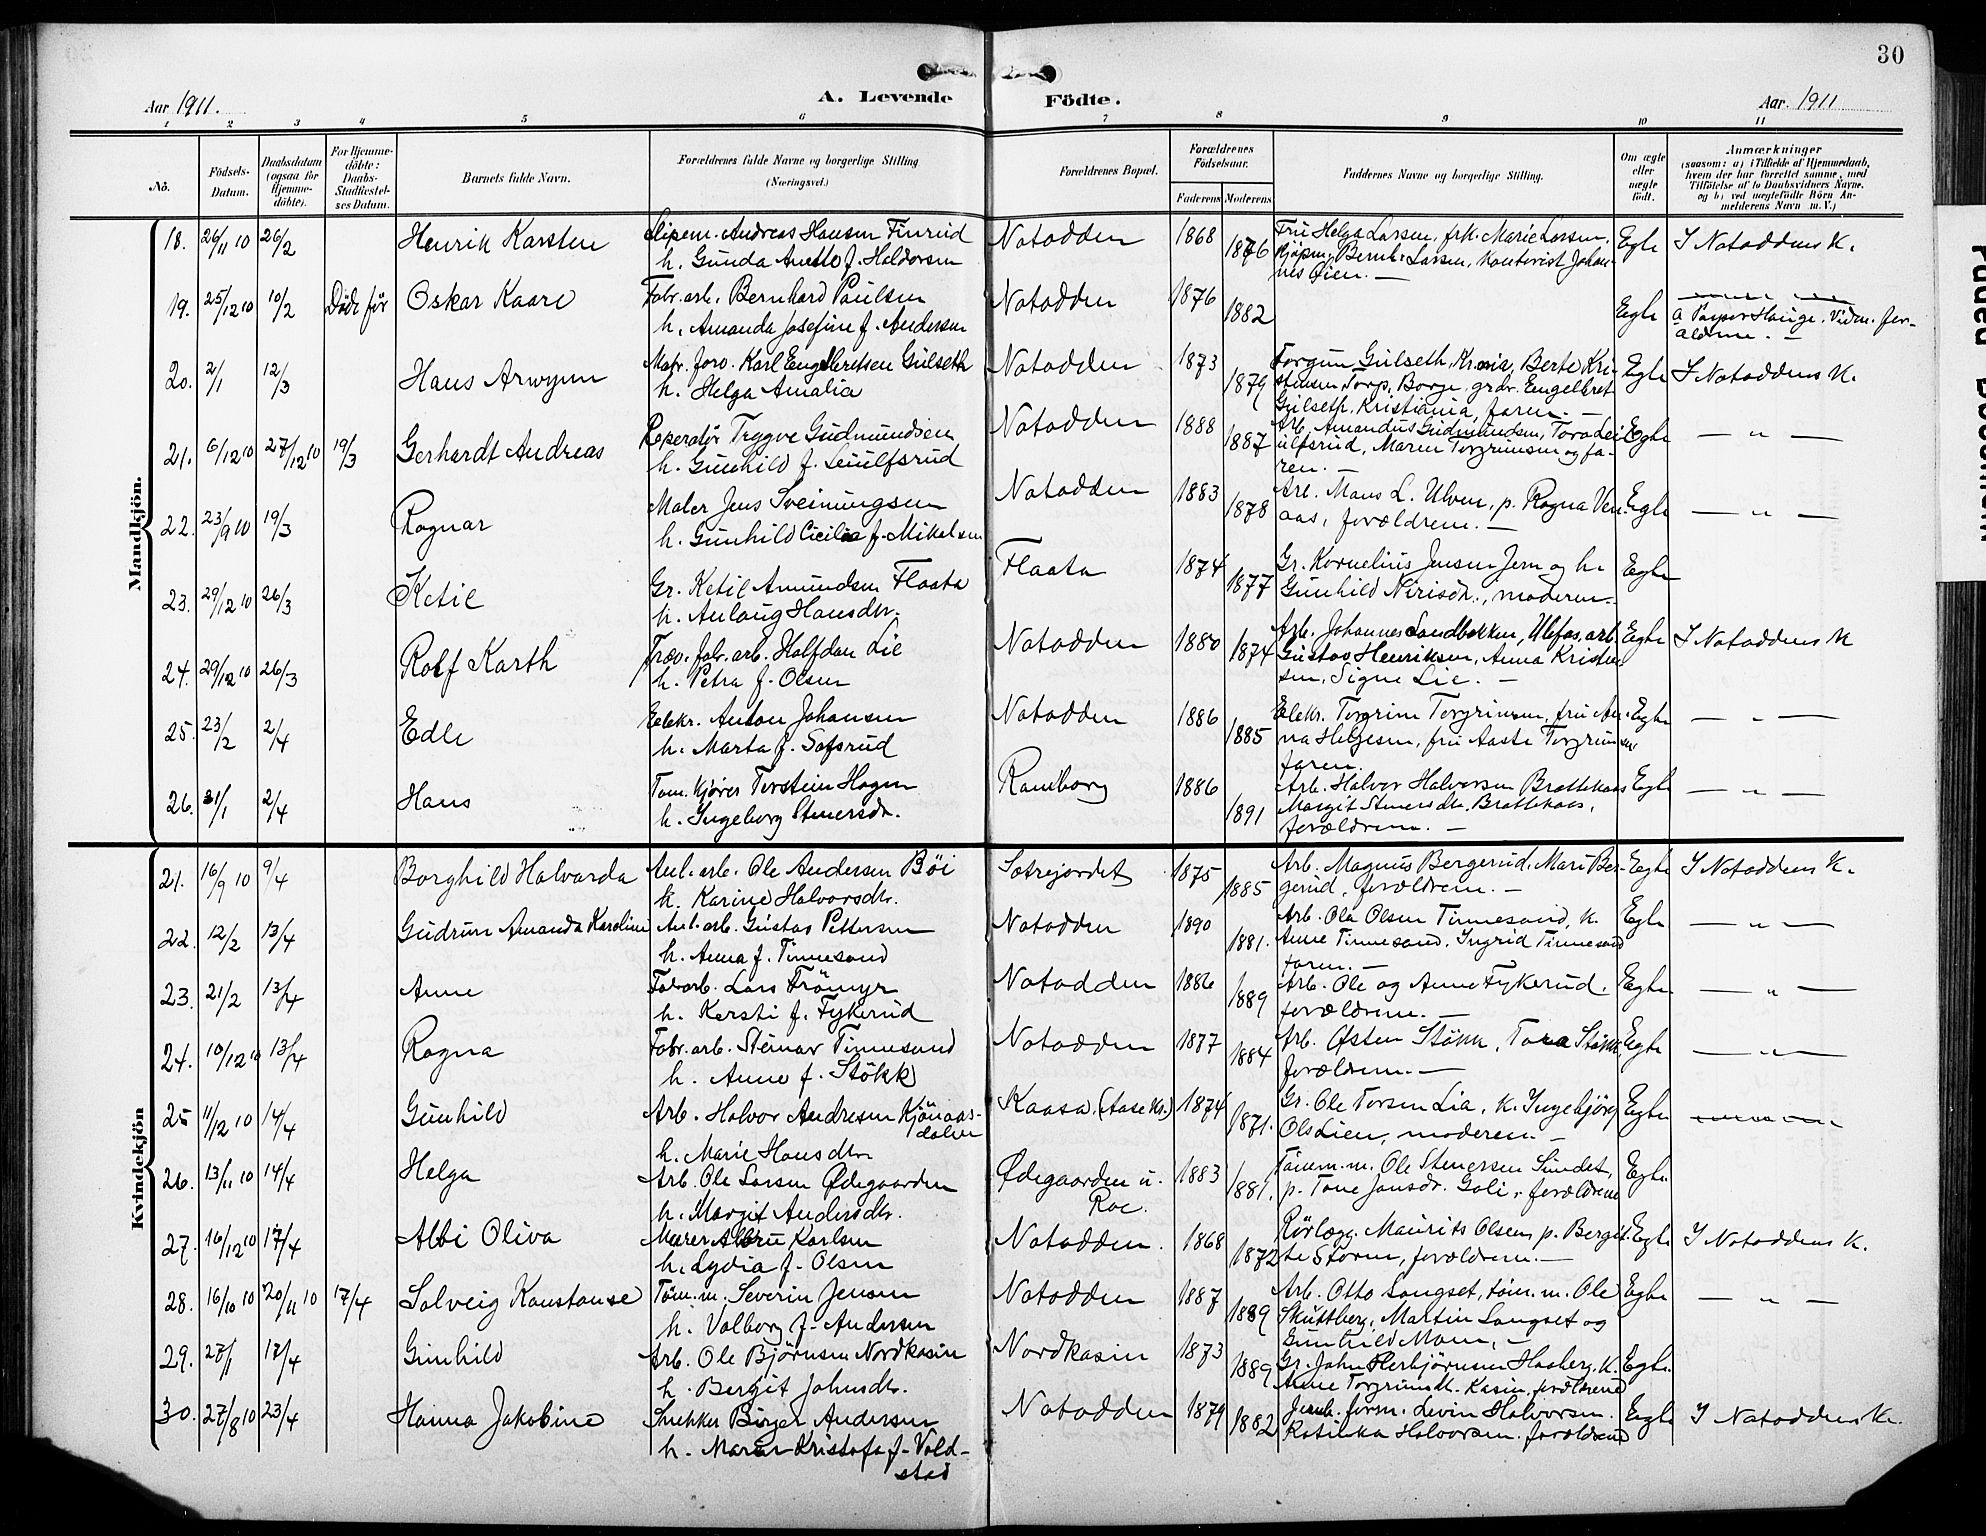 30
Aar 1911.
A. Levende Födte.
Aar. 1911
1 2 3 4 5 6 7 8 9 10 11
No.
Födsels-Datum.
Daabsdatum (ogsaa for Hjemme-döbte).
For Hjemme-döbte: Daabs-Stadfæstel-ses Datum.
Barnets fulde Navn.
Forældrenes fulde Navne og borgerlige Stilling (Næringsvei.)
Forældrenes Bopæl.
Forældrenes Födselsaar.
Faderens Moderens
Faddernes Navne og borgerlige Stilling.
Om ægte eller uægte födt.
Anmærkninger
(saasom: a) i Tilfælde af Hjemmedaab, hvem der har forrettet samme, med Tilföielse af to Daabsvidners Navne, og b) ved uægtefödte Börn An-melderens Navn m. V.)
Mandkjön.
18. 26/11 10 26/2 Henrik Karsten
Andreas Hansen Finrud
h. Gunda f. Haldorsen
Notodden 1868 1876
Fru Helga Larsen, frk. Marie Larsen,
Kjøpm. Bernh. Larsen, Kontorist Johan-
nes Øien. —
Egte I Notoddens K.
19. 25/12 10 10/2 Død før Oskar Kaare
Fabr. arb. Bernhard Paulsen
h. Amanda Josefine f. Andersen
Notodden 1876 1882
Egte
20. 2/1 12/3 Hans Arwynn
Karl Engebretsen Gulseth
h. Helga Amalia
Notodden 1873 1879
Torgun Gulseth, Berte Kri-
stensen Torp, Borge, grdr. Engelbret
Gulseth, Kristiania, faren. —
Egte I Notoddens K.
21. 6/12 10 27/12 10 19/3 Gerhardt Andreas
Reperatør Trygve Gudmundsen
h. Gunhild f.
Notodden 1888 1887
Arb. Amandus Gudmundsen,
Maren Torgrimsen og fa-
ren. —
Egte — " —
22. 23/9 10 19/3 Ragnar
Maler Jens Sveinungsen
h. Gunhild Cicilia f. Mikelsen
Notodden 1883 1878
Arb. Mons L. Ulven, p. Ragna Ven-
aas, forældrene. —
Egte — " —
23. 29/12 10 26/3 Ketil
Gr. Ketil Amundsen Flaata
h. Anlaug Hansdtr.
Flaata 1874 1877
Gr. Kornelius Jensen Jern og h.
Gunhild Nirisdr., moderen.
Egte
24. 29/12 10 26/3 Rolf Karth
Fabr. arb. Halfdan Lie
h. Petra f. Olsen
Notodden 1880 1874
Arb. Johannes Sandbekken, Ulefos, arb.
Gustav Henriksen, Anna Kristen
sen, Signe Lie. —
Egte I Notoddens K
25. 23/2 2/4 Edle
Elekr. Anton Johansen
h. Marta f.
Notodden 1886 1885
Elekr. Torgrim Torgrimsen, fru An-
na Helgesen, fru Aaste Torgrimsen
faren.
Egte — " —
26. 31/1 2/4 Hans
Tom. kjører Torstein Hagen
h. Ingeborg Stenersdr.
Ramborg 1886 1891
Arb. Halvor Halvorsen Brattekaas
Margit Stenersdtr. Brattekaas,
forældrene. —
Egte — " —
Kvindekjön
21. 16/9 10 9/4 Borghild Halvarda
Anl. arb. Ole Andersen Bøi
k. Karine Halvorsdtr.
Sætrejordet 1875 1885
Arb. Magnus Bergerud, Mari Ber-
gerud, forældrene. —
Egte I Notoddens K.
22. 12/2 13/4 Gudrun Amanda Karoline
Anl. arb. Gustav Pettersen
h. Anna f. Tinnesand
Notodden 1890 1881.
Arb. Ola Olsen Tinnesand, k.
Anne Tinnesand, Ingrid Tinnesand
faren. —
Egte — " —
23. 21/2 13/4 Anne
Fabarb. Lars Frömyr
h. Kersti f. Fykerud
Notodden 1886 1889
Arb. Ole og Anne Fykerud.
forældrene. —
Egte — " —
24. 10/12 10 13/4 Ragna
Fabr. arb. Steinar Tinnesand
h. Anne f. Støkk
Notodden 1877 1884
Arb. Østen Støkk, Tora Støkk,
forældrene. —
Egte — " —
25 11/12 10 14/4 Gunhild
Arb. Halvor Andresen Kjönaas-
dalen
h. Marie Hansdtr
Kaasa, (Aase Kr.) 1874 1871.
Gr. Ole Torsen Lia, k. Ingebjørg
Ols Lien, moderen. —
Egte
26. 13/11 10 14/4 Helga
Arb. Ole Larsen Ødegaarden
h. Margit Andersdtr.
Ødegaarden u.
Roe. 1883 1881.
Tömm. m. Ole Stenersen Sundet,
p. Tone Jansdr. Goli, forældrene
Egte.
27. 16/12 10 17/4 Albi Oliva
Murer Karlsen
h. Lydia f. Olsen
Notodden. 1868 1872
Rörlægg. Maurits Olsen, p. Bergit-
te Storm, forældrene. —
Egte I Notoddens K.
28. 16/10 10 20/11 10 17/4 Solveig Konstanse
Töm. m. Severin Jensen
h. Valborg f. Andersen
Notodden 1887 1889
Arb. Otto Langset, töm. m. Ole
Skuttberg, Martin Langset og
Gunhild Moen, —
Egte — " —
29. 27/1 17/4 Gunhild
Arb. Ole Bjørnsen Nordkasin
h. Bergit Johnsdtr.
Nordkasin 1873 1889
Gr. John Herbjörnsen Haaberg, k.
Anne Torgrimsdtr. Kasin, forældrene
Egte.
30. 27/8 10 23/4 Hanna Jakobine
Snekker Birger Andersen
h. Kristofa f. Vold-
stad
Notodden 1879 1882
Jernb. form. Levin Halvorsen.
Halvorsen, forældrene
Egte I Notoddens K.